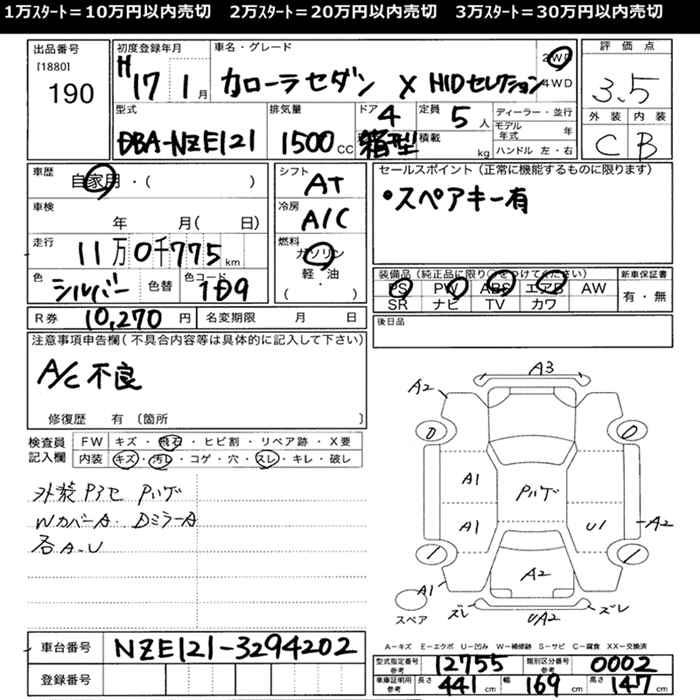 1万ｽﾀｰﾄ＝10万円以内売切　2万ｽﾀｰﾄ＝20万円以内売切　3万ｽﾀｰﾄ＝30万円以内売切
出品番号
[1880]
190
初度登録年月
H17 1月
車名・グレード
カローラセダン X HIDセレクション
2WD
4WD
評価点
3.5
外装 内装
C B
型式
DBA-NZE121
排気量
1500 CC
ドア
4
箱型
定員
5 人
積載
kg
ディーラー・並行
モデル年式 年
ハンドル 左・右
車歴
自家用・( )
車検
年 月( 日)
走行
11万0千775km
色
シルバー
色替
色コード
1D9
R券 10,270 円
名変期限 月 日
シフト
AT
冷房
A/C
燃料
ガソリン
軽・油
( ・ )
セールスポイント (正常に機能するものに限ります)
•スペアキー有
装備品 (純正品に限り○をつけてください)
PS PW ABS エアB AW
SR ナビ TV カワ
新車保証書
有・無
後日品
注意事項申告欄(不具合内容等は具体的に記入して下さい)
A/C不良
修復歴 有 〔箇所 〕
検査員記入欄
FW キズ・飛石・ヒビ割・リペア跡・X要
内装 キズ・汚レ・コゲ・穴・スレ・キレ・破レ
外装 Pハゲ
WカバーA. DミラーA
各A.U
A3
A2
0
0
A1
Pハゲ
A1
U1
A2
1
1
A1
A2
スペア
ズレ
UA2
ズレ
A-キズ E-エクボ U-凹み W-補修跡 S-サビ C-腐食 XX-交換済
車台番号 NZE121-3294202
登録番号
型式指定番号 参考 12755
類別区分番号 参考 0002
車庫証明用 参考 長さ 441 cm 幅 169 cm 高さ 147 cm